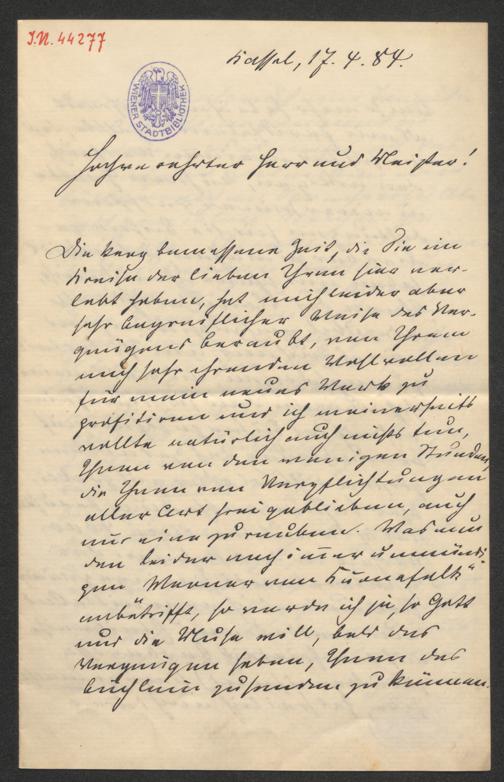 J.N. 44277
WIENER STADTBIBLIOTHEK
Kassel, 17. 4. 84.
Hochverehrter Herr und Meister!
Die karg bemessene Zeit, die Sie im
Kreise der lieben Ihren hier ver-
lebt haben, hat mich leider aber
sehr begreiflicher Weise des Ver-
gnügens beraubt, von Ihrem
mich sehr ehrenden Wohlwollen
für mein neues Werk zu
profitieren und ich meinerseits
wollte natürlich auch nichts tun,
Ihnen von den wenigen Stunden,
die Ihnen von Verpflichtungen
aller Art frei geblieben, auch
nur eine zu rauben. Was nun
den leider noch immer unmündi-
gen Werner von Kuonefalk"
anbetrifft, so werde ich ja, so Gott
und die Muse will, bald das
Vergnügen haben, Ihnen das
Büchlein zusenden zu können.